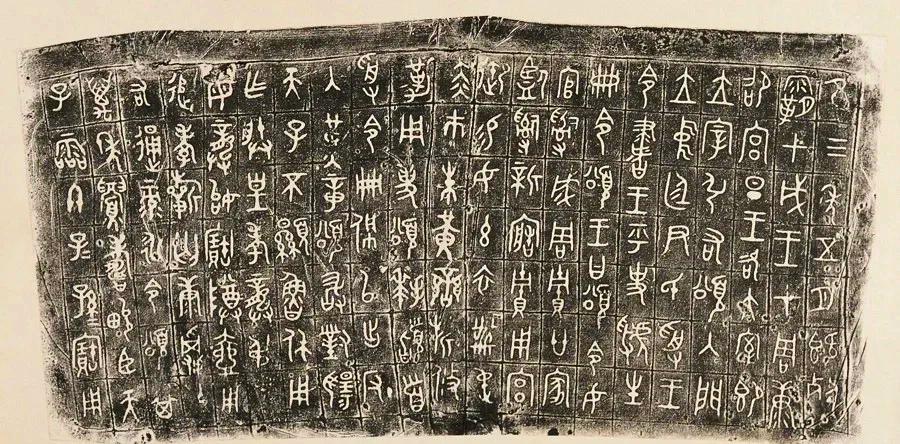 隹三年五月既死
霸甲戌王才周康
卲宮旦王各大室即
立宰弘右頌入門
立中廷尹氏受王
令書王乎史虢生
冊令頌王曰頌令女
官𤔲成周貯廿家
監𤔲新造貯用宮
御易女玄衣黹屯
赤巿朱黃鑾旂攸
勒用事頌拜𩒨首
受令冊佩以出反
入堇章頌敢對揚
天子不顯魯休用
乍朕皇考龏弔皇
母龏始寶尊壺用
追孝祈匄康𩐁屯
右通彔永令頌其
萬年眉壽畯臣天
子霝冬子子孫孫寶用